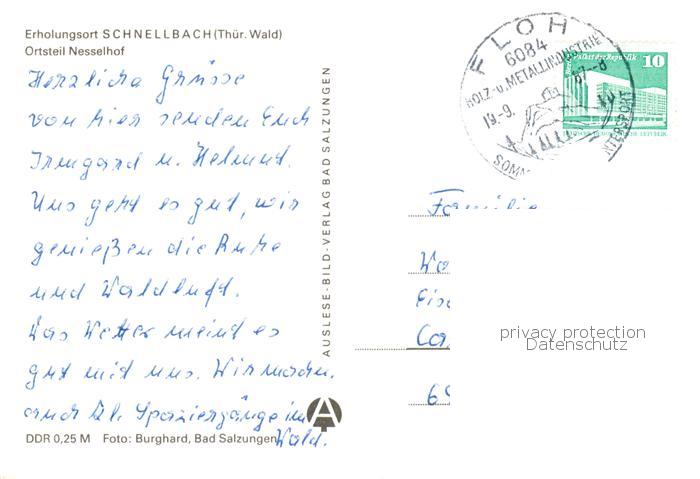 Erholungsort SCHNELLBACH (Thür. Wald)
Ortsteil Nesselhof
Herzliche Grüsse
von hier senden Euch
Irmgard u. Helmut.
Uns geht es gut, wir
genießen die Ruhe
und Waldluft.
Das Wetter meint es
gut mit uns. Wir machen
auch kl. Spaziergänge im
Wald.
DDR 0,25 M Foto: Burghard, Bad Salzungen
AUSLESE-BILD-VERLAG BAD SALZUNGEN
A
FLOH
6084
HOLZ-u. METALLINDUSTRIE
19.-9. 87-8
SOMM
NTERSPORT
Palast der Republik
10
Familie
Wa
Eise
69
privacy protection
Datenschutz